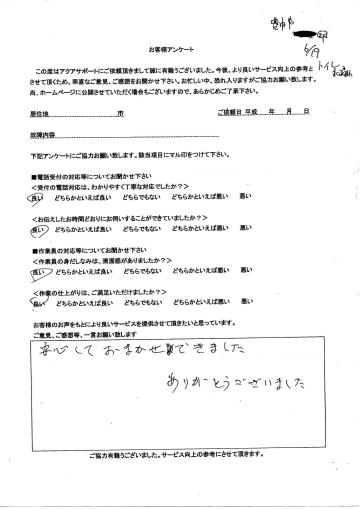 豊中市
邸
6/19
トイレ
お客様アンケート
この度はアクアサポートにご依頼頂きまして誠に有難うございました。今後、より良いサービス向上の参考と
させて頂くため、率直なご意見、ご感想をお聞かせ下さい。お忙しい中、恐れ入りますがご協力お願い致します。
尚、ホームページに公開させていただく場合もございますので、あらかじめご了承下さい。
居住地 市 ご依頼日 平成 年 月 日
故障内容
下記アンケートにご協力お願い致します。該当項目にマル印をつけて下さい。
■電話受付の対応等についてお聞かせ下さい
<受付の電話対応は、わかりやすく丁寧な対応でしたか?>
良い どちらかといえば良い どちらでもない どちらかといえば悪い 悪い
<お伝えしたお時間どおりにお伺いすることができていましたか?>
良い どちらかといえば良い どちらでもない どちらかといえば悪い 悪い
■作業員の対応等についてお聞かせ下さい
<作業員の身だしなみは、清潔感がありましたか?>
良い どちらかといえば良い どちらでもない どちらかといえば悪い 悪い
<作業の仕上がりは、ご満足いただけましたか?>
良い どちらかといえば良い どちらでもない どちらかといえば悪い 悪い
お客様のお声をもとにより良いサービスを提供させて頂きたいと思っています。
ご意見、ご感想等、一言お願い致します
安心して おまかせ できました
ありがとうございました
ご協力有難うございました。サービス向上の参考にさせて頂きます。